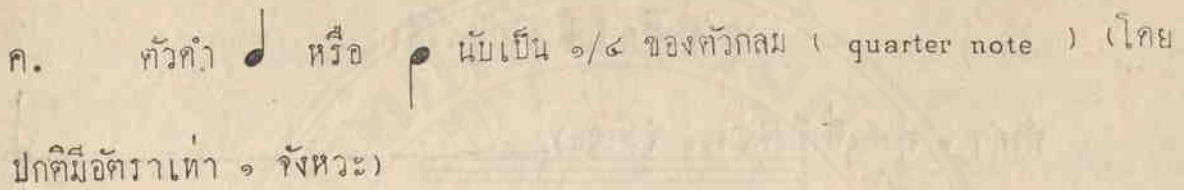 ค. ตัวดำ ♩ หรือ ♩ นับเป็น ๑/๔ ของตัวกลม ( quarter note ) (โดย
ปกติมีอัตราเท่า ๑ จังหวะ)